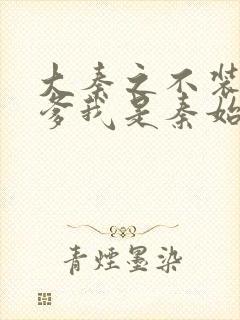 大秦之不装
爹我是秦始
青煙墨染